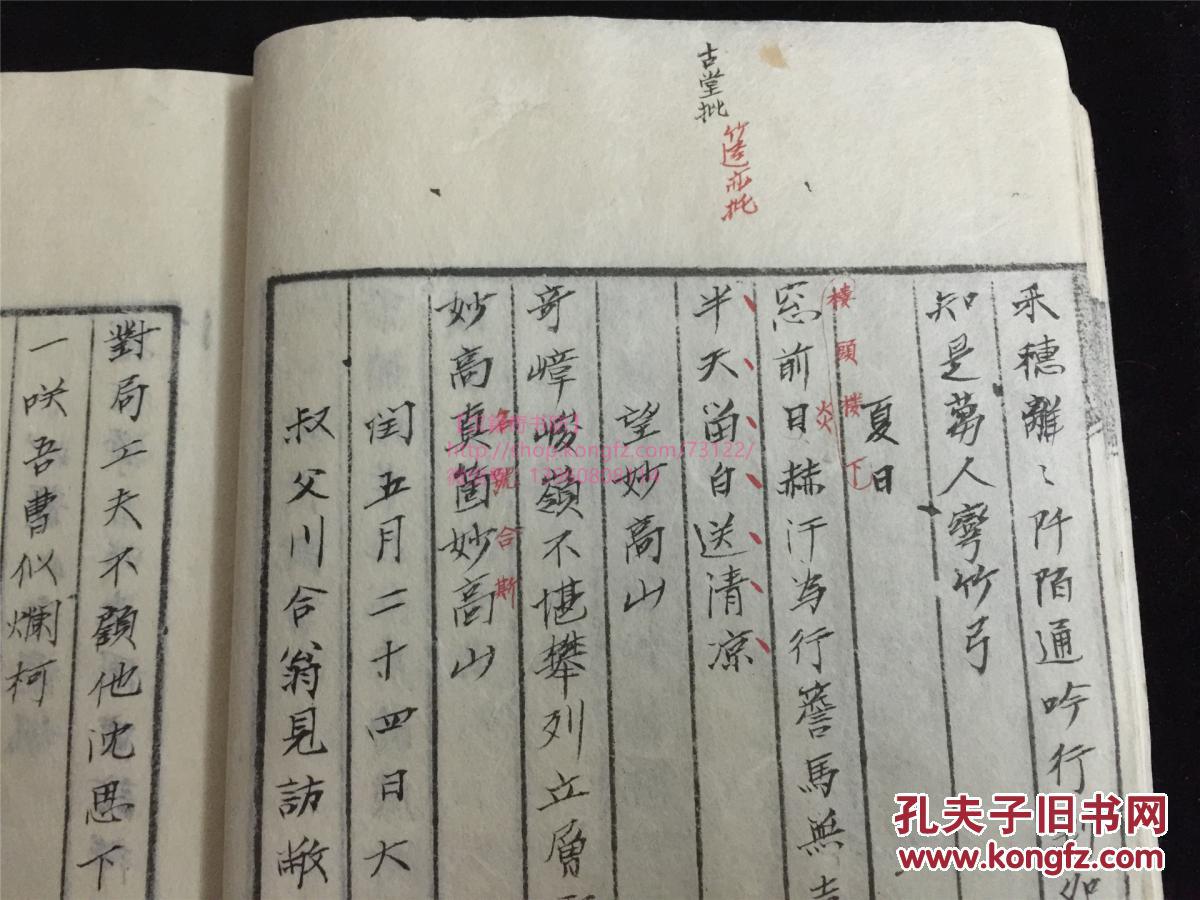 古堂批
禾穗離〻阡陌通吟行
知是葛人寧竹弓
夏日
窓前日赫汗為行簷馬無
炎
半天留白送清涼
望妙高山
奇嶂峻嶺不堪攀列立層
妙高真箇妙高山
號合斯
閏五月二十四日大
叔父川合翁見訪敝
對局工夫不顧他沈思下
一咲吾曹似爛柯
http://shop.kongfz.com/73122/
孔夫子旧书网
www.kongfz.com